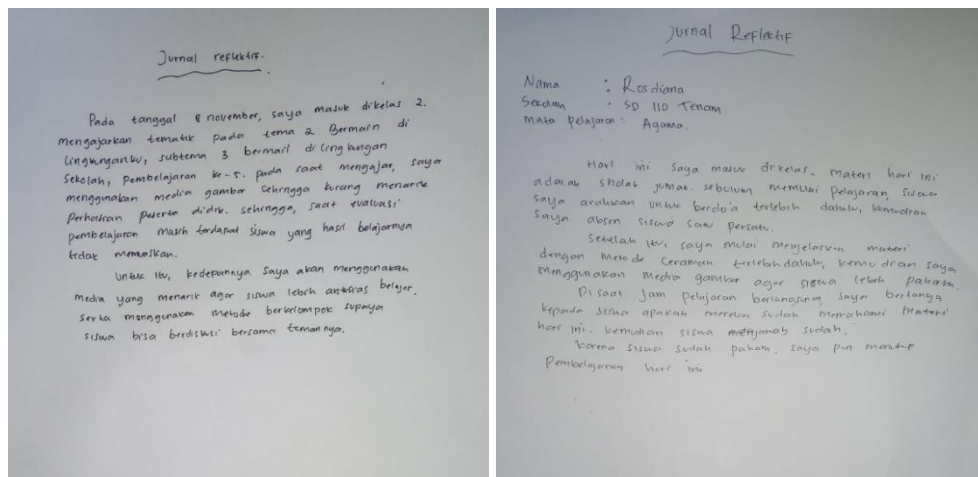 Jurnal reflektif.
Pada tanggal 8 november, saya masuk dikelas 2.
mengajarkan tematik pada tema 2 Bermain di
lingkunganku, subtema 3 bermail di lingkungan
Sekolah, pembelajaran ke-5. pada saat mengajar, saya
menggunakan media gambar sehingga kurang menarik
Perhatian peserta didik. sehingga, saat evaluasi
pembelajaran masih terdapat siswa yang hasil belajarnya
tidak memuaskan.
Untuk itu, kedepannya saya akan menggunakan
media yang menarik agar siswa lebih antusias belajar.
serta menggunakan metode berkelompok supaya
siswa bisa berdiskusi bersama temannya.
Jurnal Reflektif
Nama : Rosdiana
Sekolah : SD 110 Tenam
Mata pelajaran : Agama.
Hari ini saya masuk dikelas. materi hari ini
adalah sholat jumat. sebelum memulai pelajaran, siswa
saya arahkan untuk berdo'a terlebih dahulu, kemudian
saya absen siswa satu persatu.
Setelah itu, saya mulai menjelaskan materi
dengan metode ceramah terlebih dahulu, kemudian saya
menggunakan media gambar agar siswa lebih paham.
Disaat jam pelajaran berlangsung, saya bertanya
kepada siswa apakah mereka sudah memahami materi
hari ini. kemudian siswa menjawab sudah.
Karena siswa sudah paham, saya pun menutup
Pembelajaran hari ini